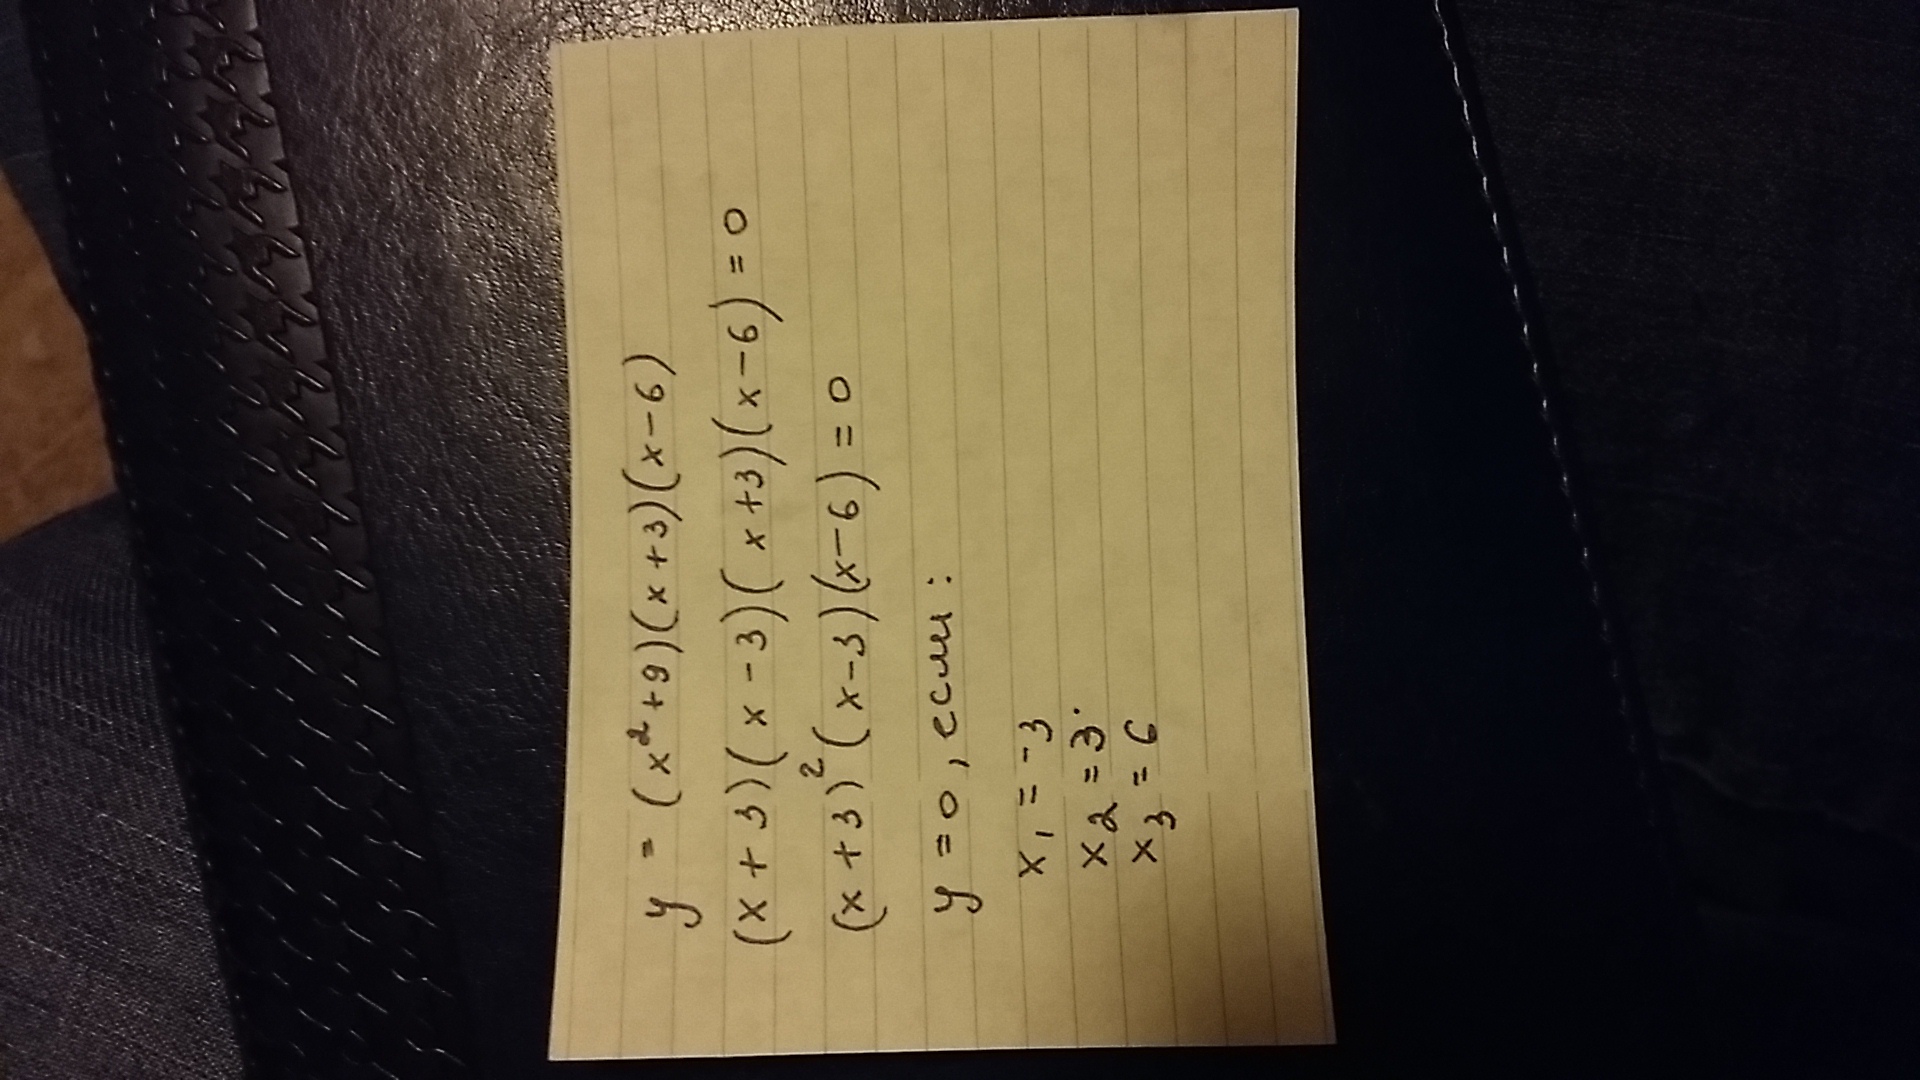 y = (x²+9)(x+3)(x-6)
(x+3)(x-3)(x+3)(x-6)=0
(x+3)²(x-3)(x-6)=0
y=0, если:
x₁=-3
x₂=3.
x₃=6